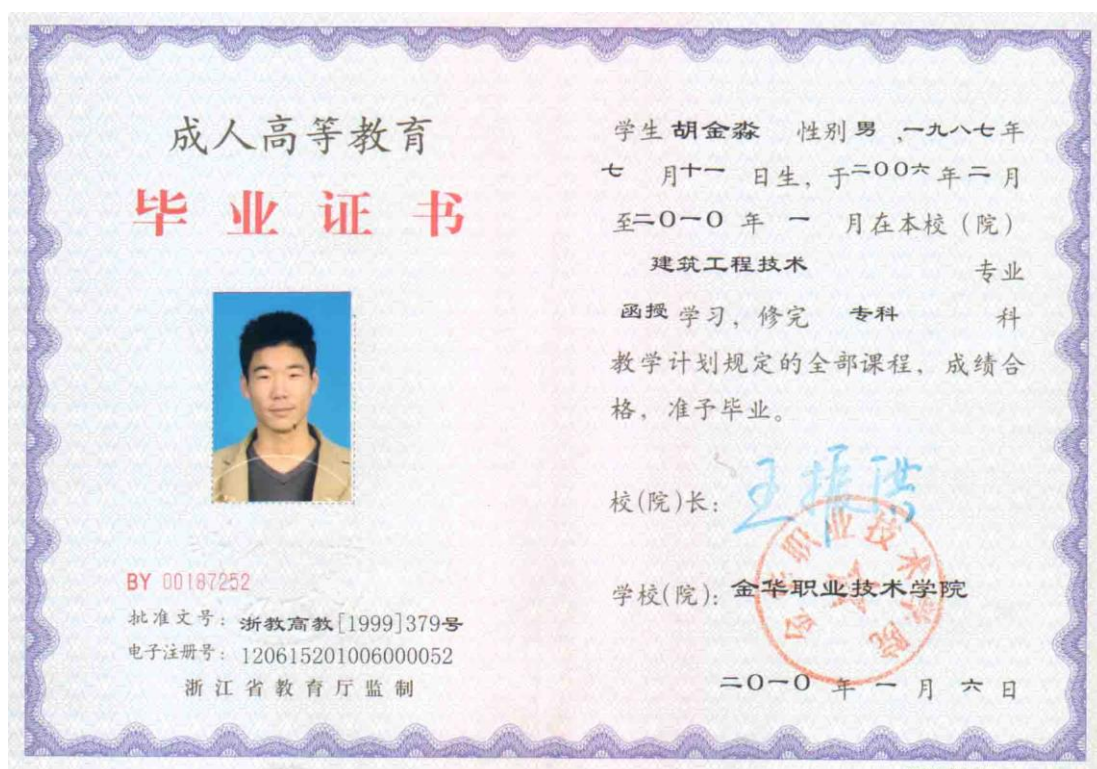 成人高等教育
毕业证书
BY 00187252
批准文号：浙教高教[1999]379号
电子注册号：120615201006000052
浙江省教育厅监制
学生 胡金淼 性别 男 ,一九八七年
七 月十一 日生，于二00六年二月
至二0一0 年 一 月在本校（院）
建筑工程技术 专业
函授 学习，修完 专科 科
教学计划规定的全部课程，成绩合
格，准予毕业。
校(院)长：王振洪
学校(院)：金华职业技术学院
金华职业技术学院
二0一0 年 一 月 六 日